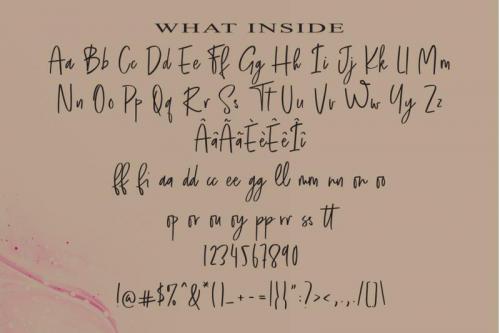 WHAT INSIDE
Aa Bb Cc Dd Ee Ff Gg Hh Ii Jj Kk Ll Mm
Nn Oo Pp Qq Rr Ss Tt Uu Vv Ww Yy Zz
ÂâÃãÈèÊêÎî
ff fi aa dd cc ee gg ll mm nn on oo
op or ou oy pp rr ss tt
1234567890
!@#$%^&*()_+-=|{}":?><,.,./[]\